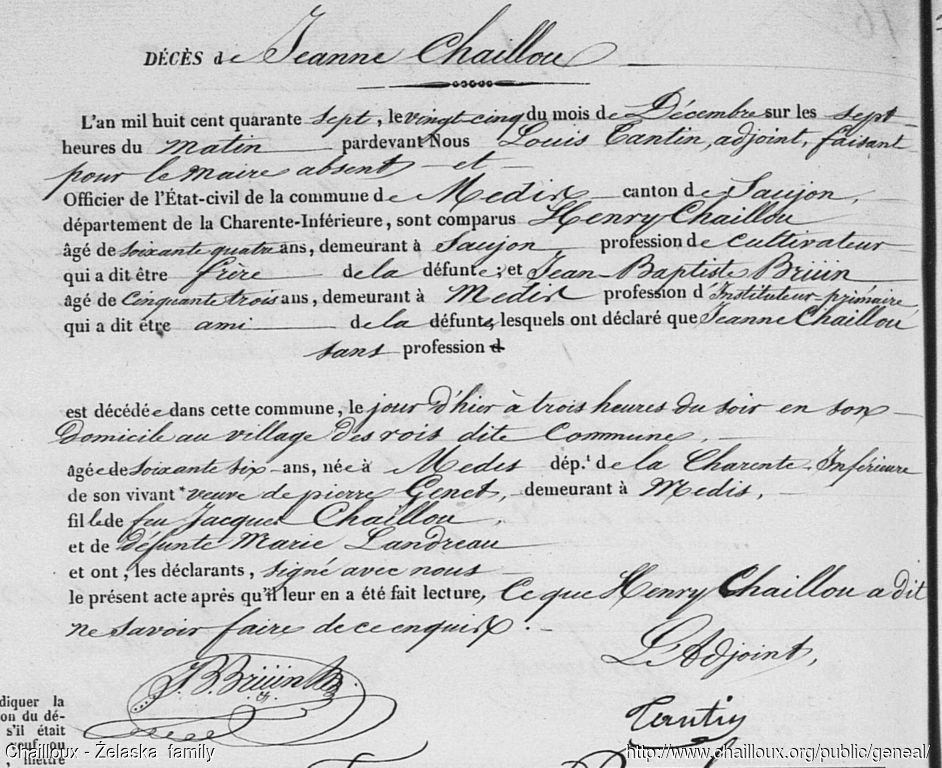 DÉCÈS de Jeanne Chaillou
L'an mil huit cent quarante sept, le vingt-cinq du mois de Décembre sur les sept
heures du matin pardevant Nous Louis Tantin, adjoint, faisant
pour le maire absent et
Officier de l'État-civil de la commune de Medis canton de Saujon,
département de la Charente-Inférieure, sont comparus Henry Chaillou
âgé de soixante quatre ans, demeurant à Saujon profession de cultivateur
qui a dit être frère de la défunte ; et Jean-Baptiste Briiin
âgé de Cinquante trois ans, demeurant à Medis profession d'Instituteur-primaire
qui a dit être ami de la défunte, lesquels ont déclaré que Jeanne Chaillou
sans profession d
est décédée dans cette commune, le jour d'hier à trois heures du soir en son
Domicile au village des rois dite Commune,
âgée de soixante six ans, née à Medis dép.t de la Charente-Inférieure
de son vivant veuve de pierre Genet, demeurant à Medis,
fille de feu Jacques Chaillou,
et de défunte Marie Landreau
et ont, les déclarants, signé avec nous
le présent acte après qu'il leur en a été fait lecture, Ce que Henry Chaillou a dit
ne savoir faire de ce enquis.
L'Adjoint,
J. B. Briiin
Tantin
diquer la
on du dé-
s'il était
veuf ou
, mettre
Chailloux - Żelaska family
http://www.chailloux.org/public/geneal/